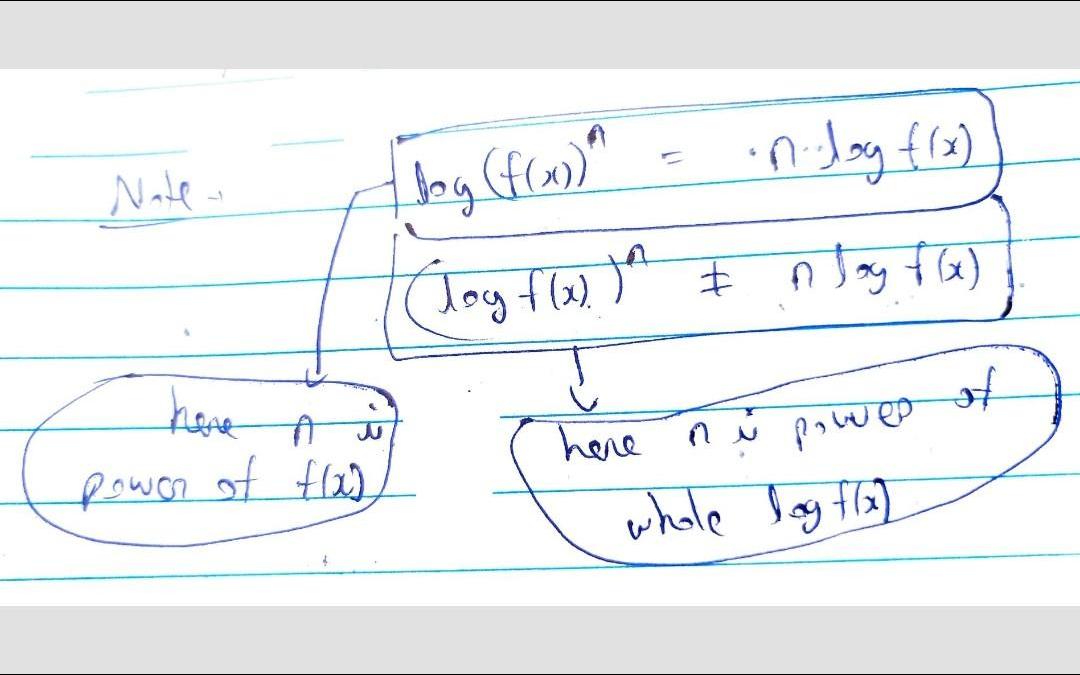 Note -
log (f(x))ⁿ = n·log f(x)
(log f(x))ⁿ ≠ n log f(x)
here n is
power of f(x)
here n is power of
whole log f(x)